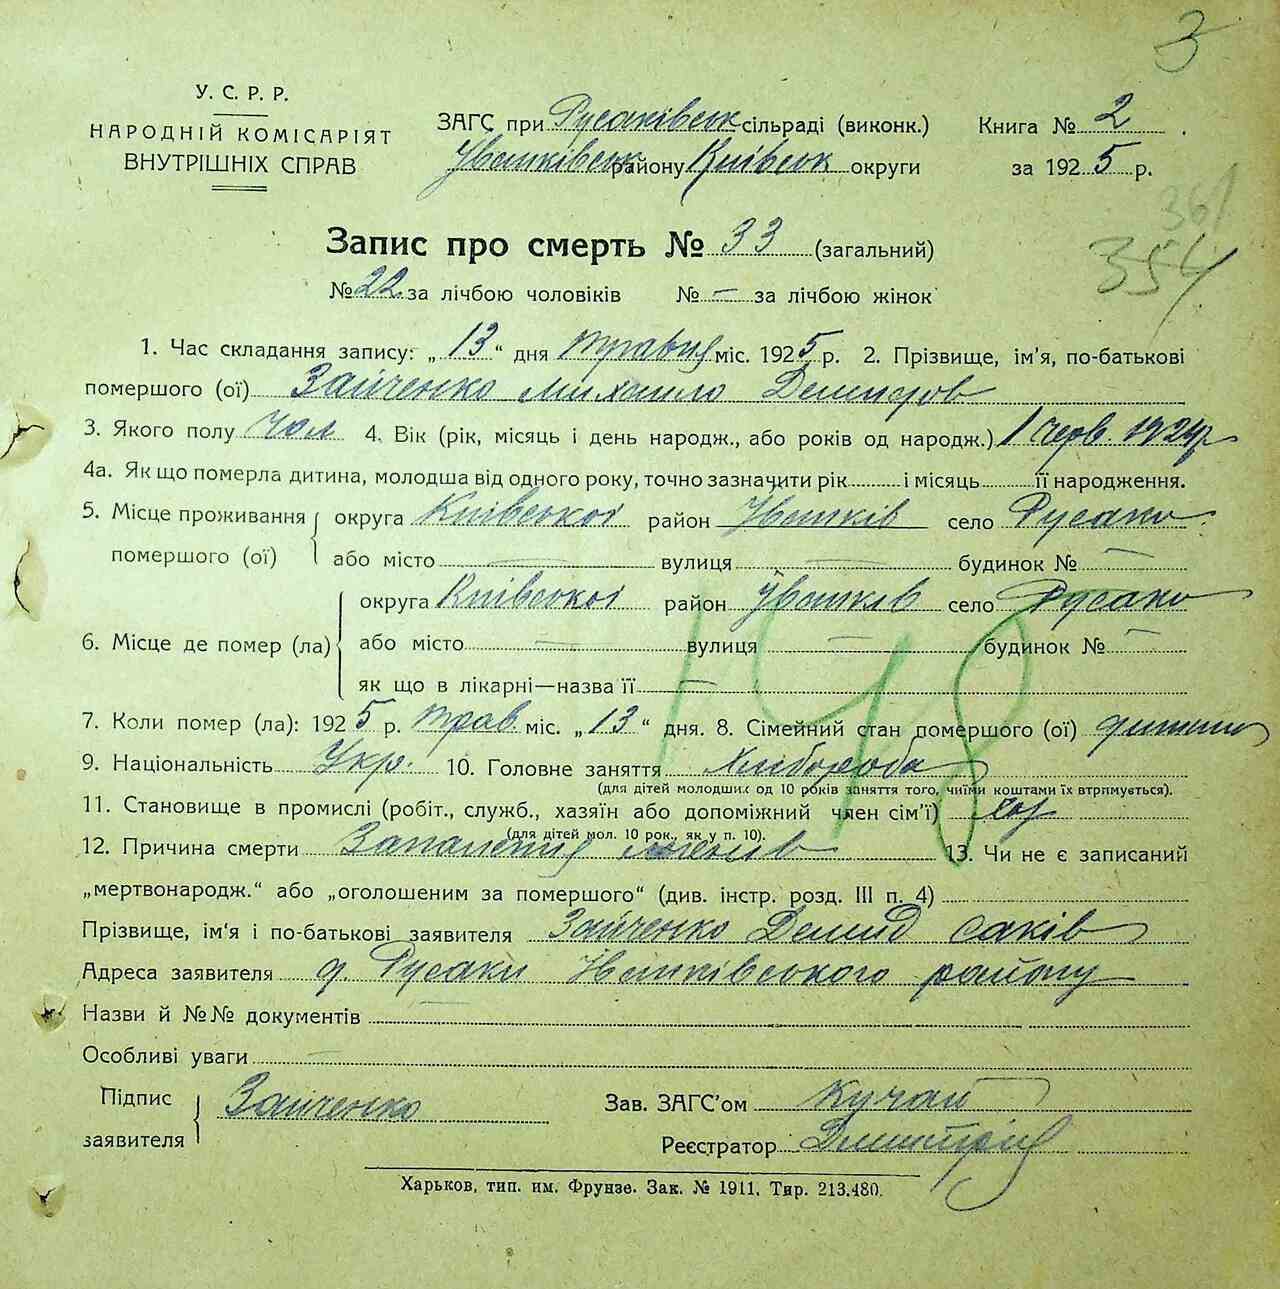 3
У. С. Р. Р.
НАРОДНІЙ КОМІСАРІЯТ
ВНУТРІШНІХ СПРАВ
ЗАГС при Русаківськ сільраді (виконк.)
Книга № 2
району Київськ округи
за 1925 р.
354
Запис про смерть № 33 (загальний)
№ 22 за лічбою чоловіків № — за лічбою жінок
1. Час складання запису: „ 13 “ дня травня міс. 1925 р. 2. Прізвище, ім'я, по-батькові
помершого (ої) Зайченко Михайло Демидов
3. Якого полу Чол 4. Вік (рік, місяць і день народж., або років од народж.) 1 черв. 1924р
4а. Як що померла дитина, молодша від одного року, точно зазначити рік і місяць її народження.
5. Місце проживання помершого (ої) округа Київської район село Русаки
або місто — вулиця — будинок № —
6. Місце де помер (ла) округа Київської район село Русаки
або місто — вулиця — будинок № —
як що в лікарні—назва її —
148
7. Коли помер (ла): 1925 р. трав. міс. „ 13 “ дня. 8. Сімейний стан помершого (ої) дитина
9. Національність Укр. 10. Головне заняття Хлібороба
(для дітей молодших од 10 років заняття того, чиїми коштами їх втримується).
11. Становище в промислі (робіт., служб., хазяїн або допоміжний член сім'ї)
(для дітей мол. 10 рок., як у п. 10).
12. Причина смерти Запалення легенів 13. Чи не є записаний
„мертвонародж.“ або „оголошеним за помершого“ (див. інстр. розд. III п. 4)
Прізвище, ім'я і по-батькові заявителя Зайченко Демид Саків
Адреса заявителя Русаки району
Назви й №№ документів
Особливі уваги
Підпис заявителя Зайченко
Зав. ЗАГС'ом Кучай
Реєстратор
Харьков, тип. им. Фрунзе. Зак. № 1911. Тир. 213.480.